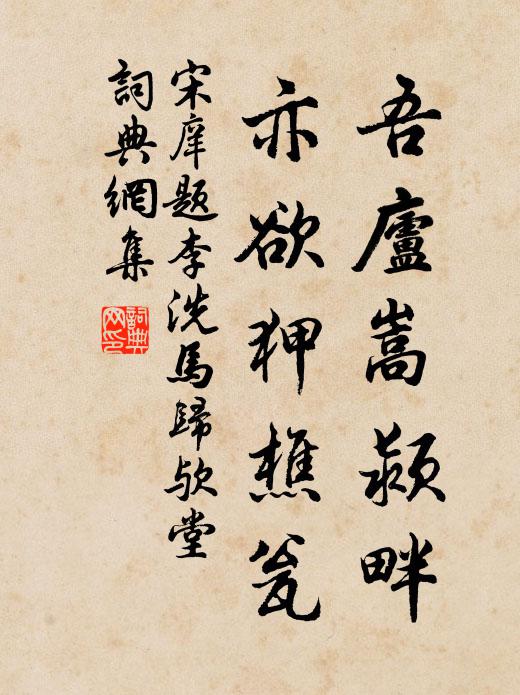 吾廬嵩潁畔
亦欲狎樵瓮
宋庠題李洗馬歸欤堂
詞典網集
詞典
网印